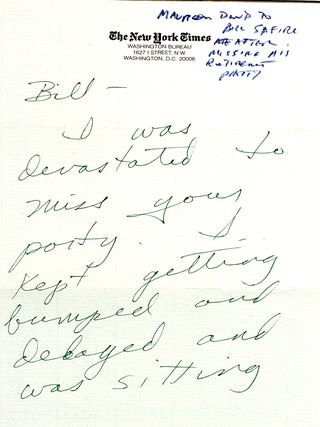 MAUREEN DOWD TO
BILL SAFIRE
AFTER
MISSING HIS
RETIREMENT
PARTY
The New York Times
WASHINGTON BUREAU
1627 I STREET, N.W.
WASHINGTON, D.C. 20006
Bill –
I was
devastated to
miss your
party. I
kept getting
bumped and
delayed and
was sitting